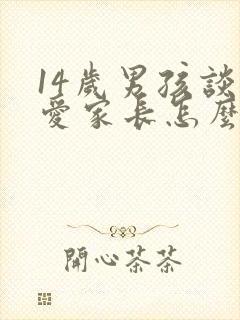 14歲男孩談
愛家長怎麼
開心茶茶